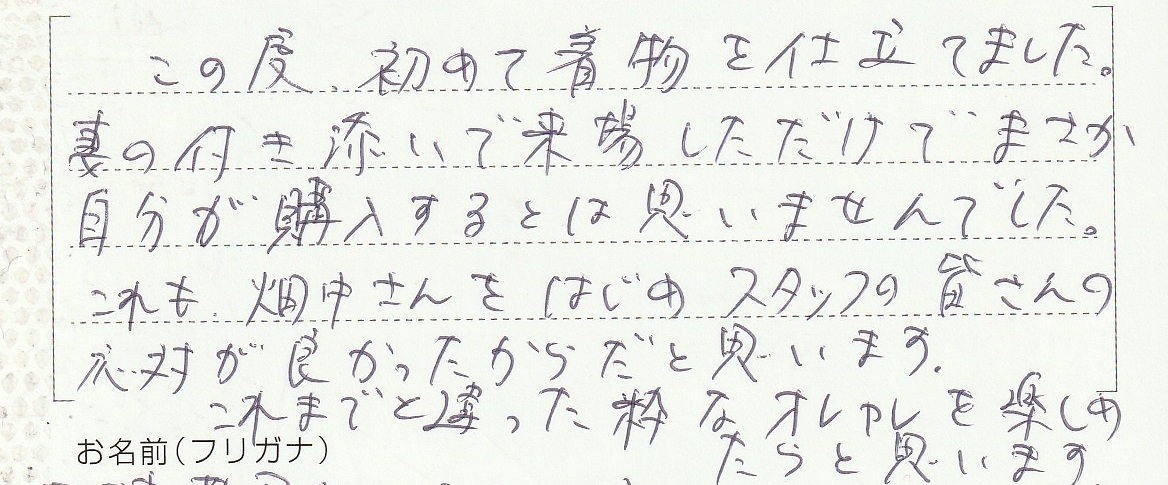 この度、初めて着物を仕立てました。
妻の付き添いで来場しただけでまさか
自分が購入するとは思いませんでした。
これも、畑中さんをはじめスタッフの皆さんの
応対が良かったからだと思います。
これまでと違った粋なオシャレを楽しめ
たらと思います
お名前(フリガナ)